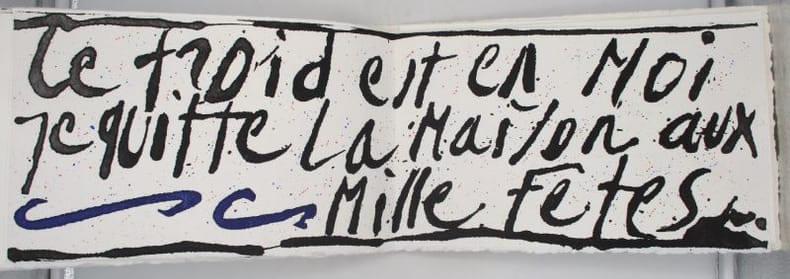 Le froid est en Moi
je quitte La Maison aux
Mille Fêtes